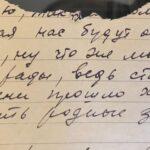 ая нас будут о
, ну что же мы
рады, ведь ст
ени прошло х
ть родные з